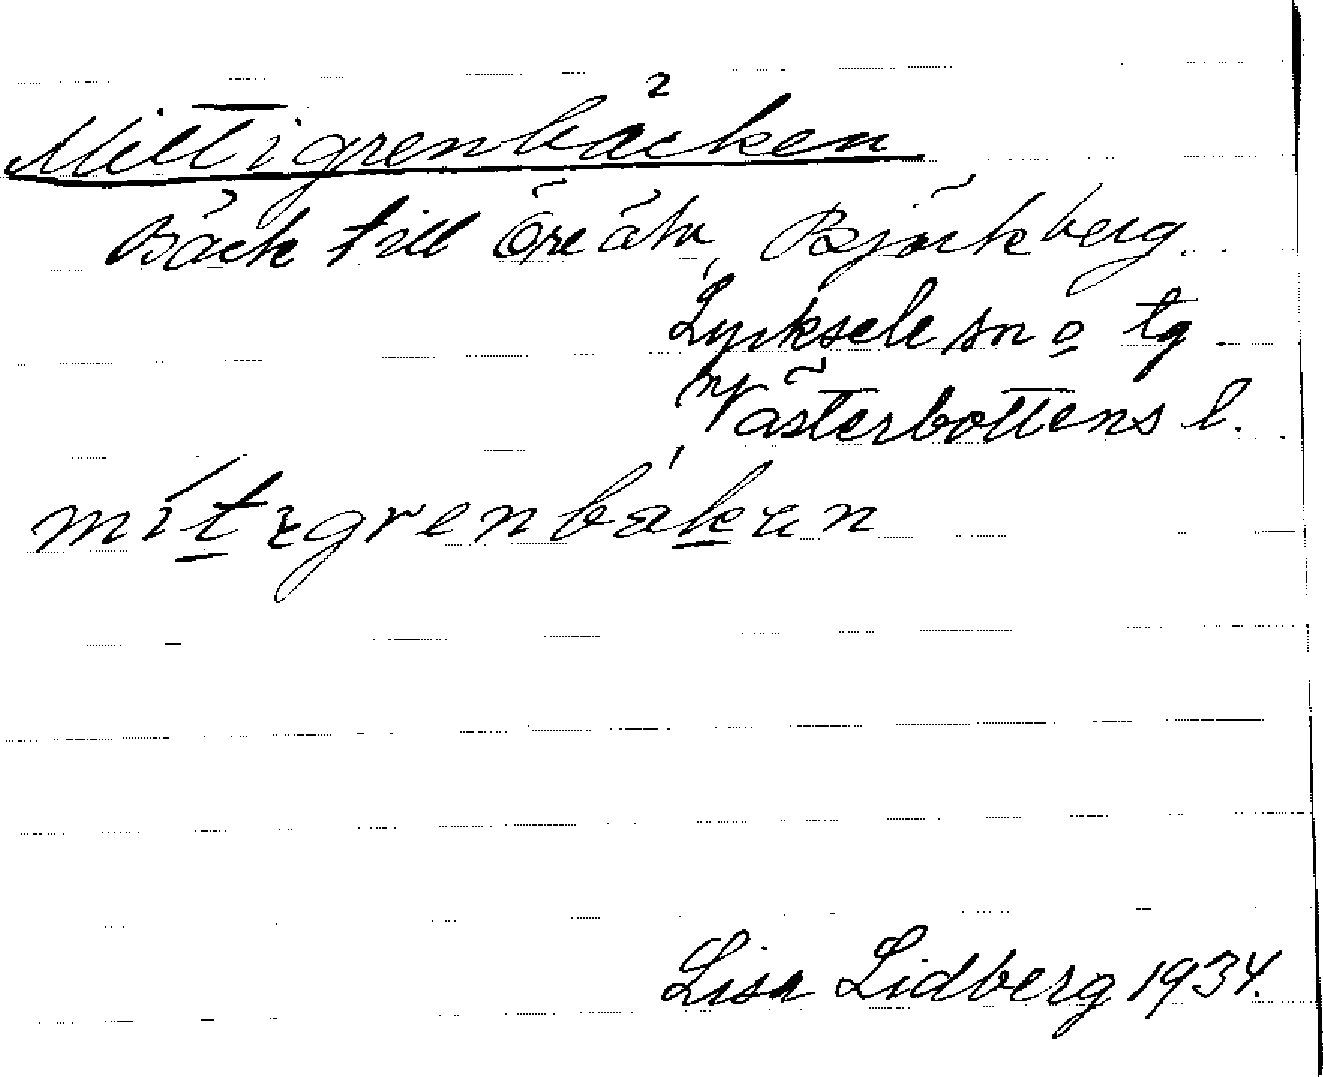 Mittigrenbäcken
Bäck till Öreälv, Björkberg.
Lycksele sn o tg
Västerbottens l.
mítɩgrenbäkən
Lisa Lidberg 1934.